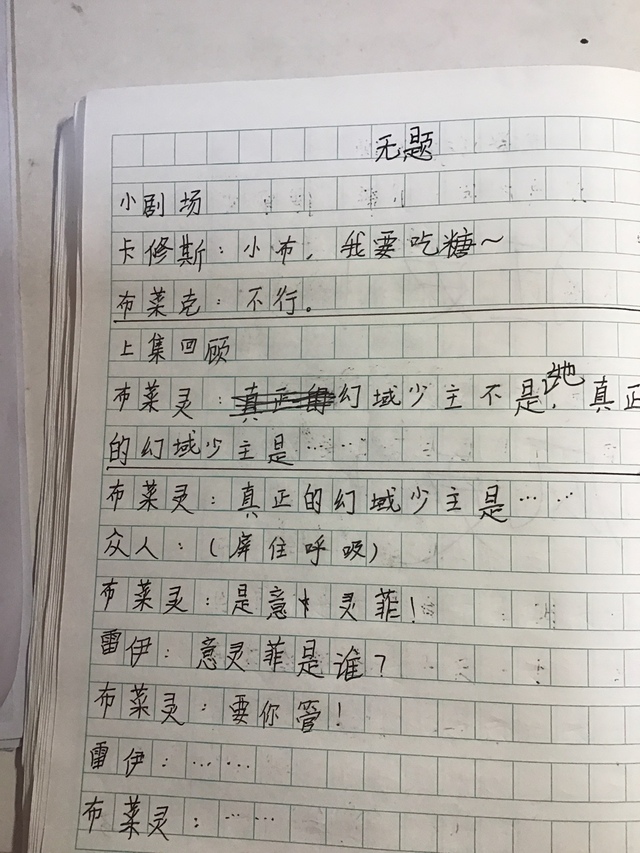 无题
小剧场
卡修斯：小布，我要吃糖～
布莱克：不行。
上集回顾
布莱灵：幻域少主不是她，真正
的幻域少主是……
布莱灵：真正的幻域少主是……
众人：（屏住呼吸）
布莱灵：是意灵菲！
雷伊：意灵菲是谁？
布莱灵：要你管！
雷伊：……
布莱灵：……